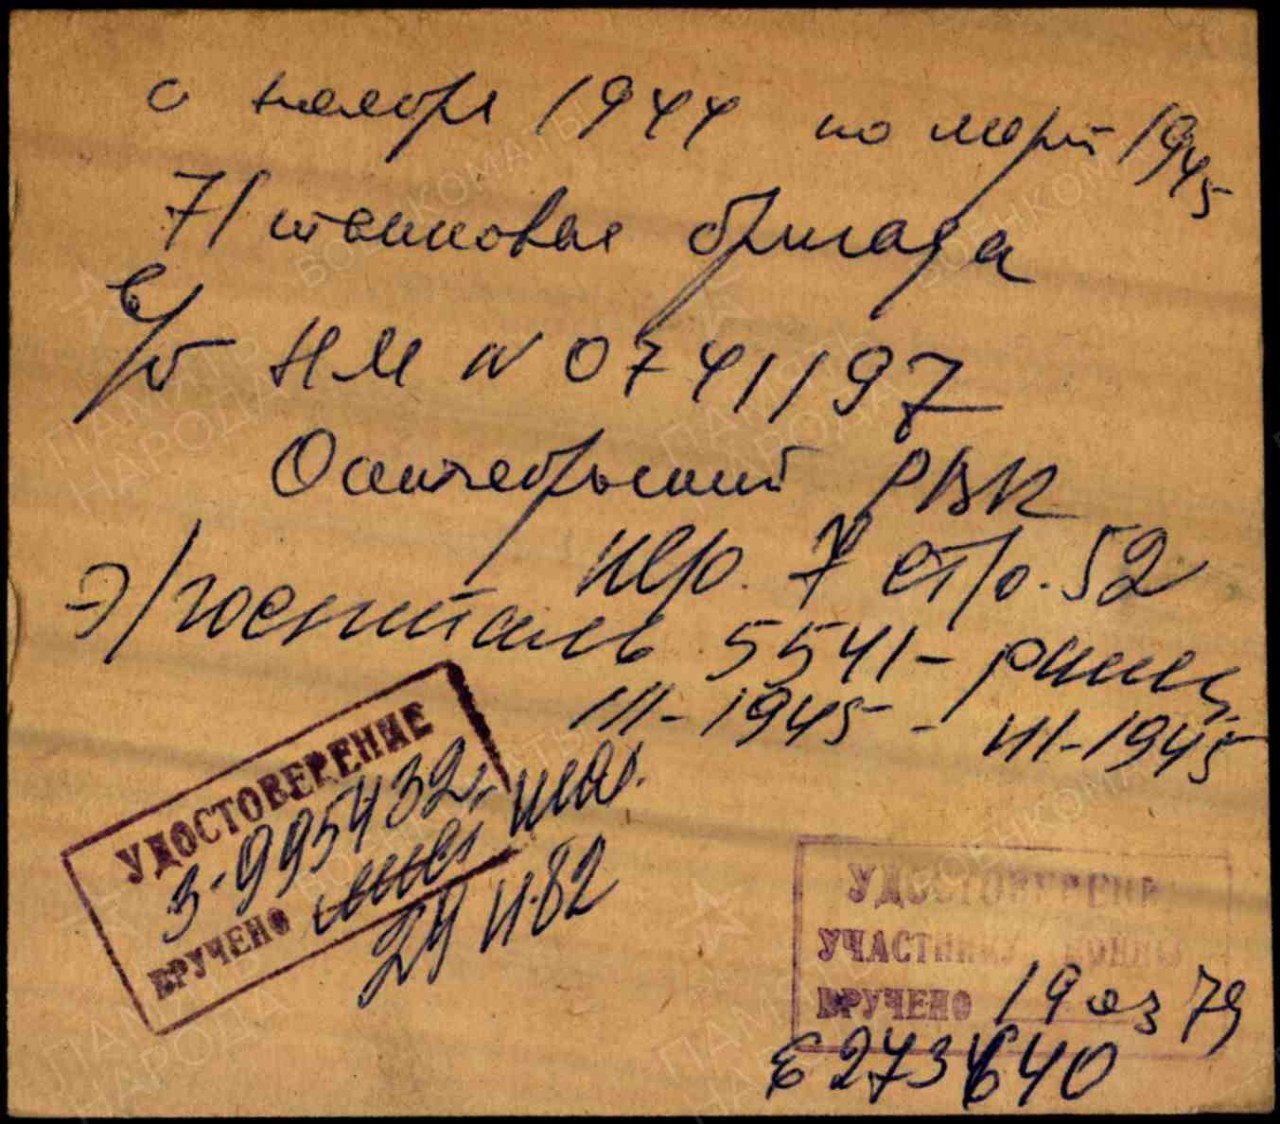 с ноября 1944 по март 1945
71 танковая бригада
в/б НМ N 0741197
Октябрьский РВК
пер. 7 стр. 52
Э/госпиталь 5541 -
III-1945 - III-1945
УДОСТОВЕРЕНИЕ
3-995432
ВРУЧЕНО
29 11.82
УДОСТОВЕРЕНИЕ
УЧАСТНИКУ ВОЙНЫ
ВРУЧЕНО 19 03 79
Е 273640